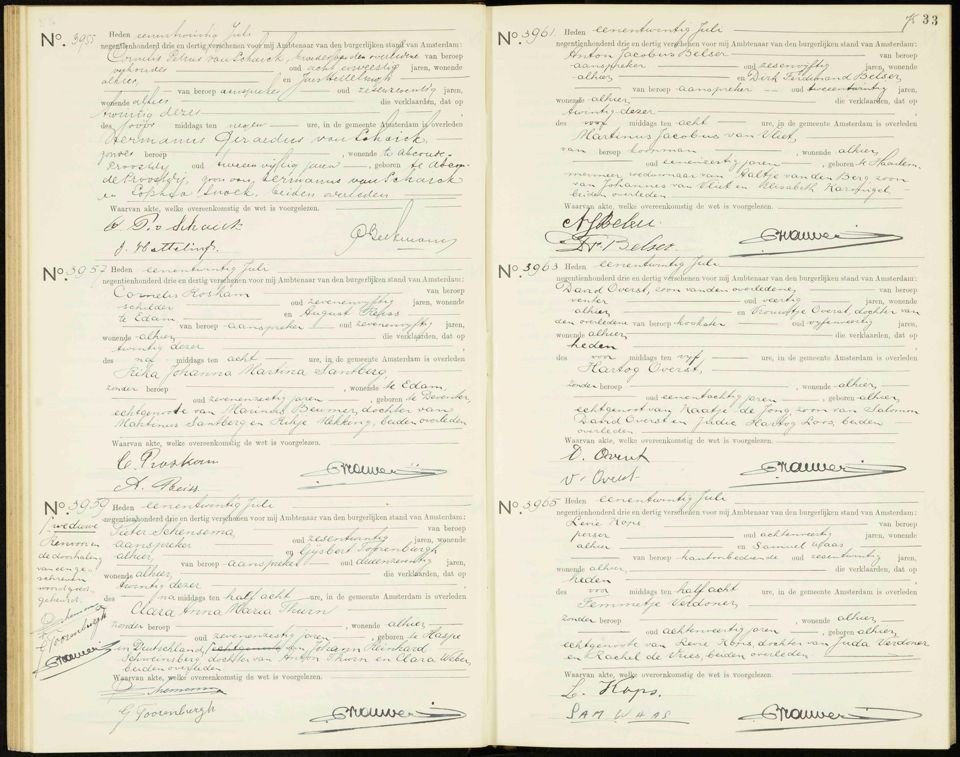 No. 3955 Heden eenentwintig Juli
negentienhonderd drie en dertig verschenen voor mij Ambtenaar van den burgerlijken stand van Amsterdam:
Cornelis Petrus van Schaick, van beroep
oud achtenveertig jaren, wonende
alhier, en Jan Hettelingh
van beroep aanspreker oud jaren,
wonende alhier die verklaarden, dat op
twintig dezer
des middags ten negen ure, in de gemeente Amsterdam is overleden
Hermanus Gerardus van Schaick,
zonder beroep, wonende te Abcoude-
Proostdij oud jaren, geboren te Abcou-
de Proostdij, zoon van Hermanus van Schaick
en Sophia Snoek, beiden overleden
Waarvan akte, welke overeenkomstig de wet is voorgelezen.
C. P. v Schaick
J. Hettelingh
No. 3957 Heden eenentwintig Juli
negentienhonderd drie en dertig verschenen voor mij Ambtenaar van den burgerlijken stand van Amsterdam:
Cornelis van beroep
schilder oud zevenenvijftig jaren, wonende
te Edam en August
van beroep aanspreker oud zevenenvijftig jaren,
wonende alhier die verklaarden, dat op
twintig dezer
des na middags ten acht ure, in de gemeente Amsterdam is overleden
Rika Johanna Martina Santberg
zonder beroep, wonende te Edam,
oud zevenenzestig jaren, geboren te Deventer,
echtgenoote van Marinus Beumer, dochter van
Martinus Santberg en Rikje Hekking, beiden overleden
Waarvan akte, welke overeenkomstig de wet is voorgelezen.
No. 3959 Heden eenentwintig Juli
negentienhonderd drie en dertig verschenen voor mij Ambtenaar van den burgerlijken stand van Amsterdam:
Pieter Schensema, van beroep
aanspreker oud zesentwintig jaren, wonende
alhier, en Gijsbert Toorenburgh
van beroep aanspreker oud jaren,
wonende alhier, die verklaarden, dat op
twintig dezer
des na middags ten half acht ure, in de gemeente Amsterdam is overleden
Clara Anna Maria Thurn
zonder beroep, wonende alhier,
oud zevenenzestig jaren, geboren te Haspe
in Deutschland, echtgenoote van Johann Reinhard
Schweinsberg, dochter van Anton Thurn en Clara Weber,
beiden overleden
Waarvan akte, welke overeenkomstig de wet is voorgelezen.
G Toorenburgh
weduwe
de doorhaling
van een ge-
G Toorenburgh
33
No. 3961 Heden eenentwintig Juli
negentienhonderd drie en dertig verschenen voor mij Ambtenaar van den burgerlijken stand van Amsterdam:
Anton Jacobus Belser van beroep
aanspreker oud zesenvijftig jaren, wonende
alhier en Dirk Ferdinand Belser,
van beroep aanspreker oud tweeentwintig jaren,
wonende alhier, die verklaarden, dat op
twintig dezer
des voor middags ten acht ure, in de gemeente Amsterdam is overleden
Martinus Jacobus van Vliet,
van beroep, wonende alhier,
oud jaren, geboren te Haarlem-
mermeer, weduwnaar van Aaltje van den Berg, zoon
van Johannes van Vliet en Elisabeth
beiden overleden
Waarvan akte, welke overeenkomstig de wet is voorgelezen.
A J Belser
D. F. Belser
No. 3963 Heden eenentwintig Juli
negentienhonderd drie en dertig verschenen voor mij Ambtenaar van den burgerlijken stand van Amsterdam:
David Overst, zoon van den overledene, van beroep
venter oud veertig jaren, wonende
alhier, en Vrouwtje Overst, dochter van
den overledene van beroep oud vijfenveertig jaren,
wonende alhier die verklaarden, dat op
heden
des voor middags ten vijf ure, in de gemeente Amsterdam is overleden
Hartog Overst,
zonder beroep, wonende alhier,
oud eenentachtig jaren, geboren alhier,
echtgenoot van Kaatje de Jong, zoon van Salomon
David Overst en Judie Hartog Loos, beiden
overleden
Waarvan akte, welke overeenkomstig de wet is voorgelezen.
D. Overst
V. Overst
No. 3965 Heden eenentwintig Juli
negentienhonderd drie en dertig verschenen voor mij Ambtenaar van den burgerlijken stand van Amsterdam:
Levie Kops van beroep
perser oud achtenveertig jaren, wonende
alhier en Samuel Waas
van beroep kantoorbediende oud zesentwintig jaren,
wonende alhier, die verklaarden, dat op
heden
des middags ten half acht ure, in de gemeente Amsterdam is overleden
Femmetje Verdoner
zonder beroep, wonende alhier,
oud achtenveertig jaren, geboren alhier,
echtgenoote van Levie Kops, dochter van Juda Verdoner
en Rachel de Vries, beiden overleden
Waarvan akte, welke overeenkomstig de wet is voorgelezen.
L. Kops.
SAM WAAS